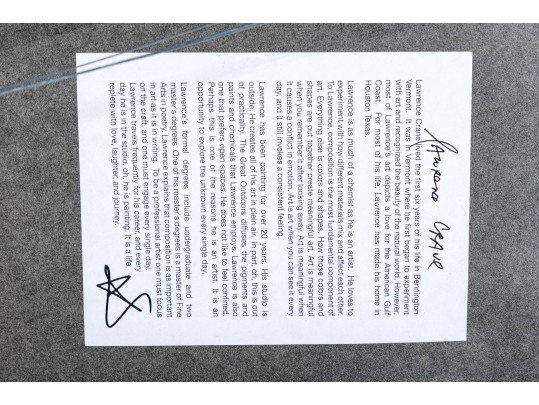 Lawrence CRANE
Lawrence Crane lived the first six years of his life in Bennington
Vermont. It was in Vermont where he first began to experiment
with art and recognized the beauty of the natural world. However,
most of Lawrence's art depicts a love for the American Gulf
Coast. For most of his life, Lawrence has made his home in
Houston Texas.
Lawrence is as much of a chemist as he is an artist. He loves to
experiment with how different materials mix and affect each other.
To Lawrence, composition is the most fundamental component of
art. Everything else is colors and shapes. How those colors and
shapes are put together create meaningful art. Art is meaningful
when you remember it after looking away. Art is meaningful when
it causes a conflict in emotion. Art is art when you can see it every
day, and it still invokes a consistent feeling.
Lawrence has been painting for over 20 years. His studio is
outside. He creates all of his art in plein air. In part, oh, this is out
of practicality. The Great Outdoors diffuses the pigments and
paints and chemicals that Lawrence employs. Lawrence is also
one that prefers open spaces. He does not like to feel confined.
Perhaps this is one of the reasons he is an artist. It is an
opportunity to explore the unknown every single day.
Lawrence's formal degrees include undergraduate and two
master's degrees. One of his master's degrees is a master of Fine
Arts in poetry. Lawrence explains that composition is as important
in art as it is in writing. To be a professional artist one must focus
on the craft, and one must engage every single day.
Lawrence travels frequently for his career, and every
day he is in the studio, oh, he is painting. It is a life
replete with love, laughter, and journey.